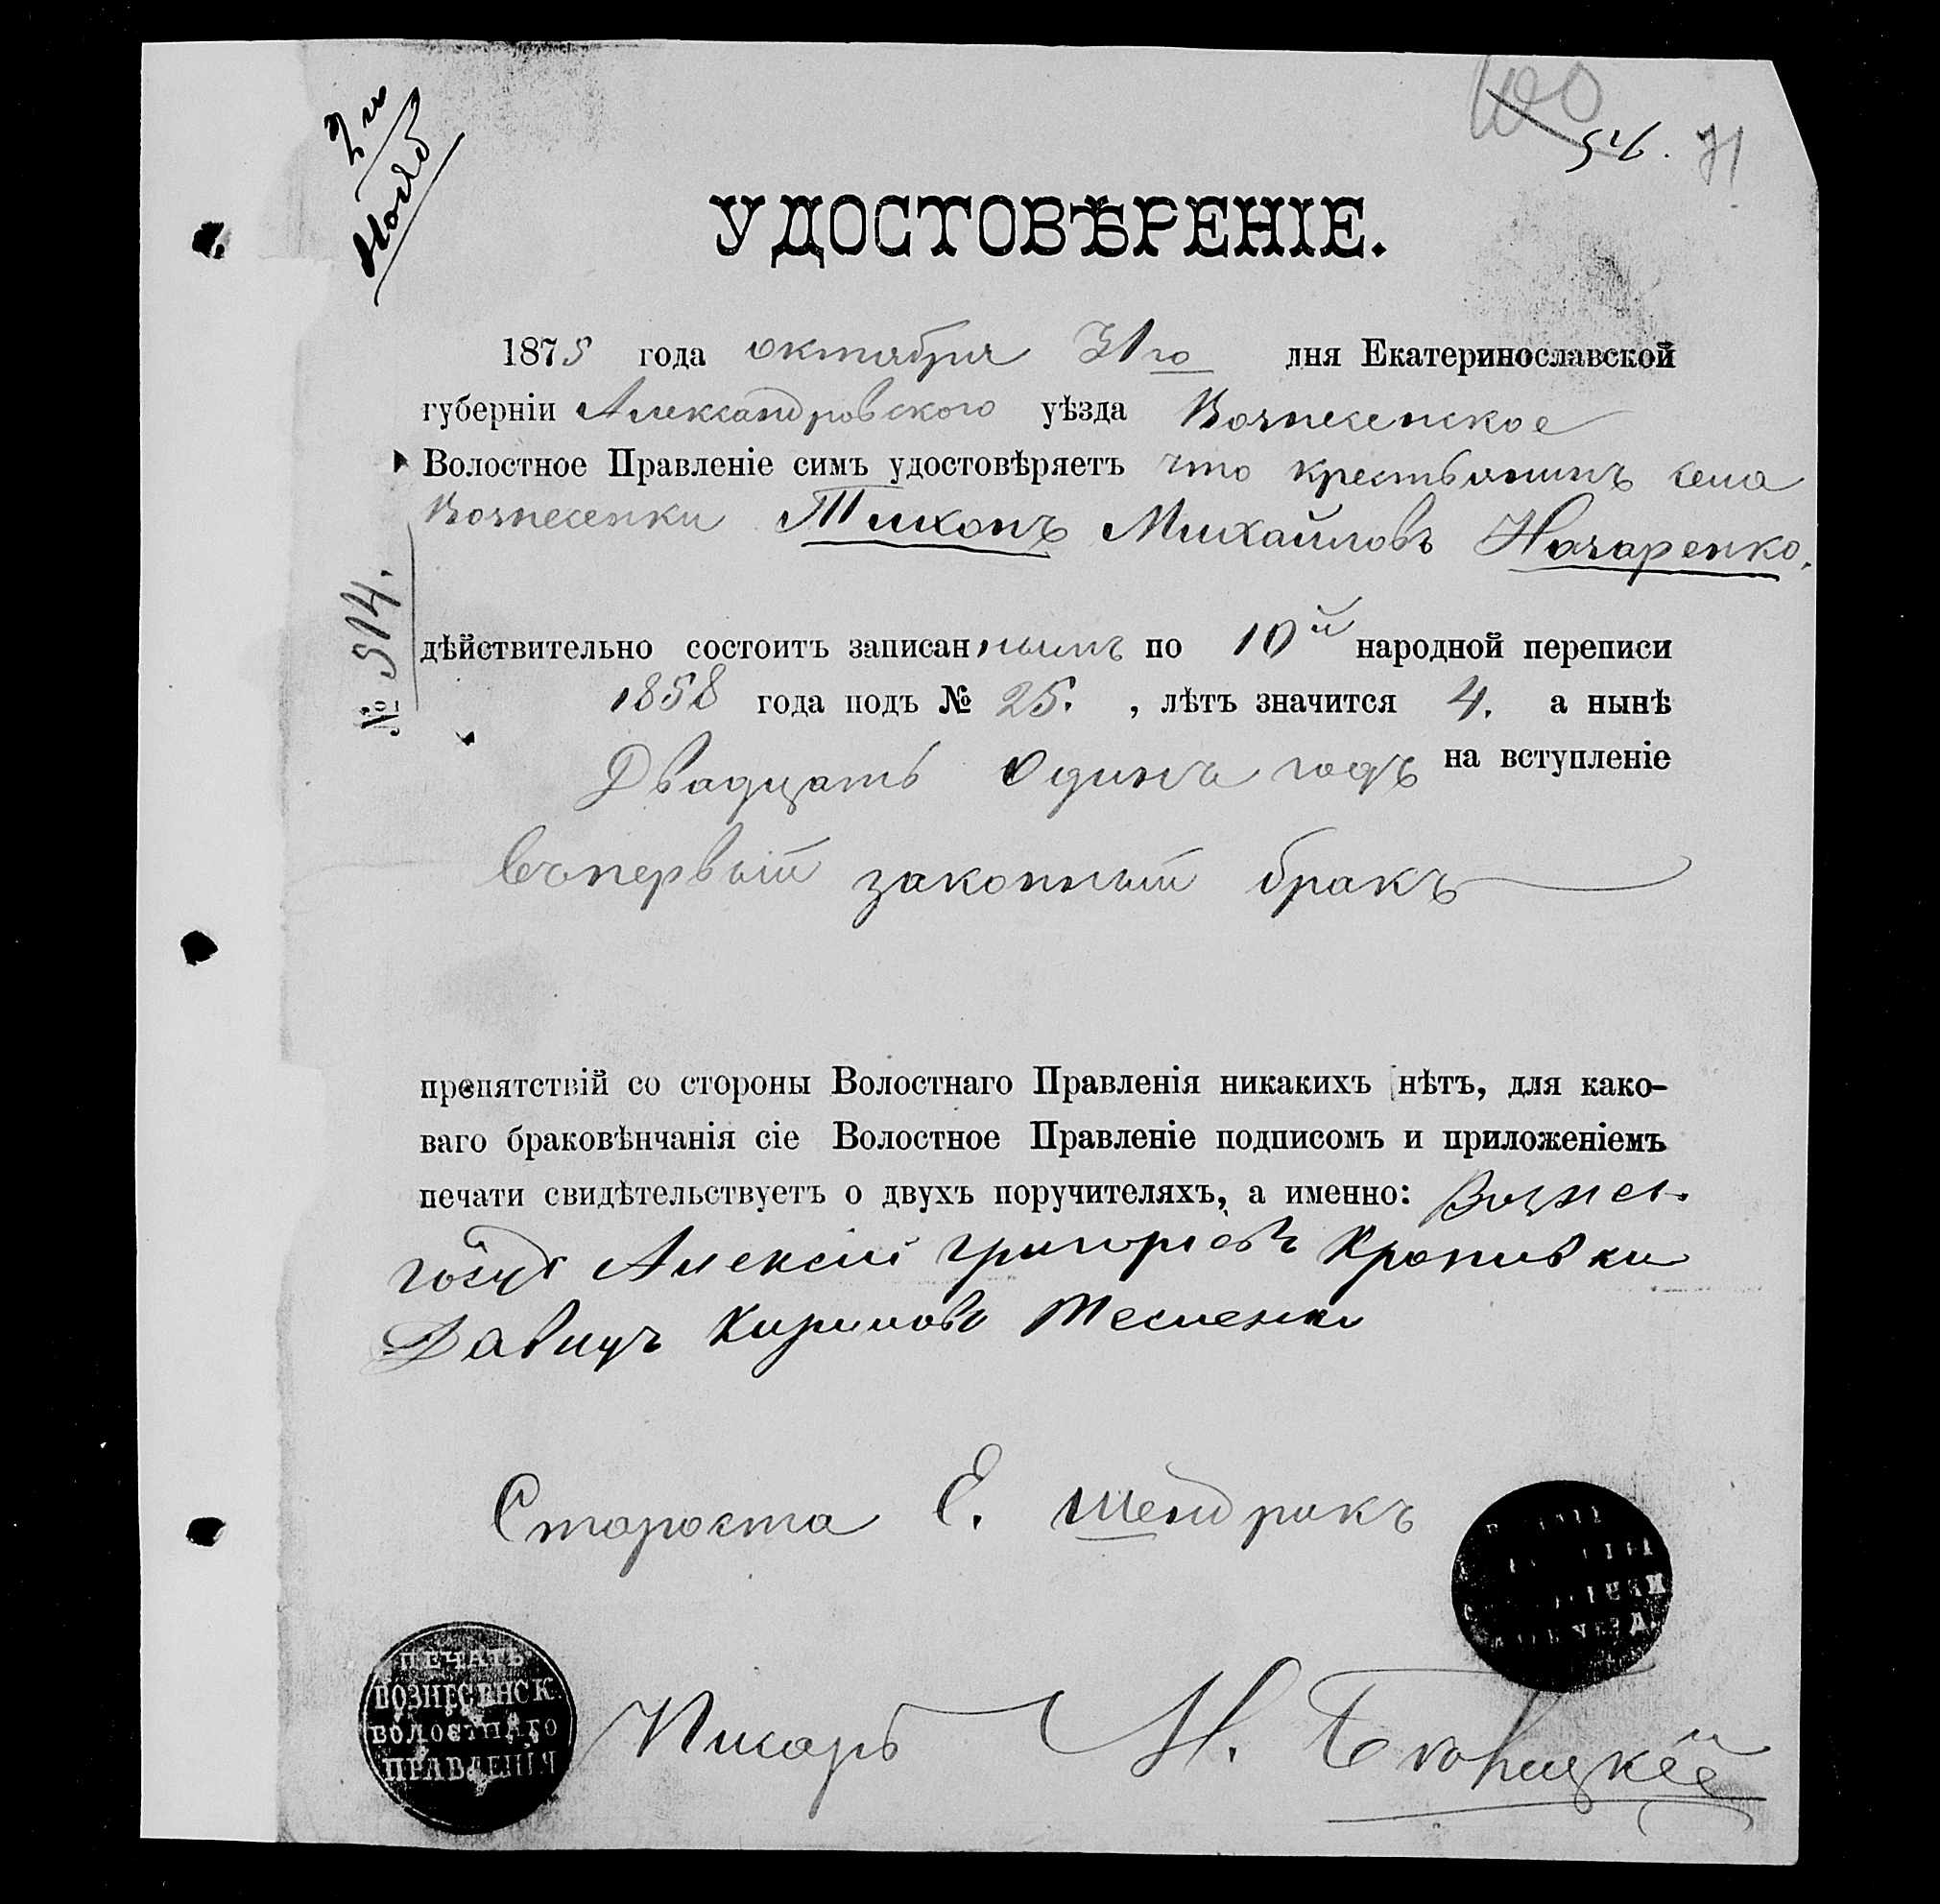 100
54. 71
УДОСТОВѢРЕНІЕ.
1875 года октября 31го дня Екатеринославской
губерніи Александровского уѣзда Вознесенское
Волостное Правленіе симъ удостовѣряетъ что крестьянинъ села
Вознесенки Тихонъ Михайловъ Назаренко.
№ 514.
дѣйствительно состоитъ записаннымъ по 10й народной переписи
1858 года подъ № 25. , лѣтъ значится 4. а нынѣ
Двадцать Одинъ годъ на вступленіе
Вопервый законный бракъ
препятствій со стороны Волостнаго Правленія никакихъ нѣтъ, для како-
ваго браковѣнчанія сіе Волостное Правленіе подписомъ и приложеніемъ
печати свидѣтельствуетъ о двухъ поручителяхъ, а именно:
Алексій Григоріевъ
Давидъ Кириловъ Тесленко
Староста Е. Шендрикъ
ПЕЧАТЬ
ВОЗНЕСЕНСК.
ВОЛОСТНАГО
ПРАВЛЕНІЯ
Писарь Н.